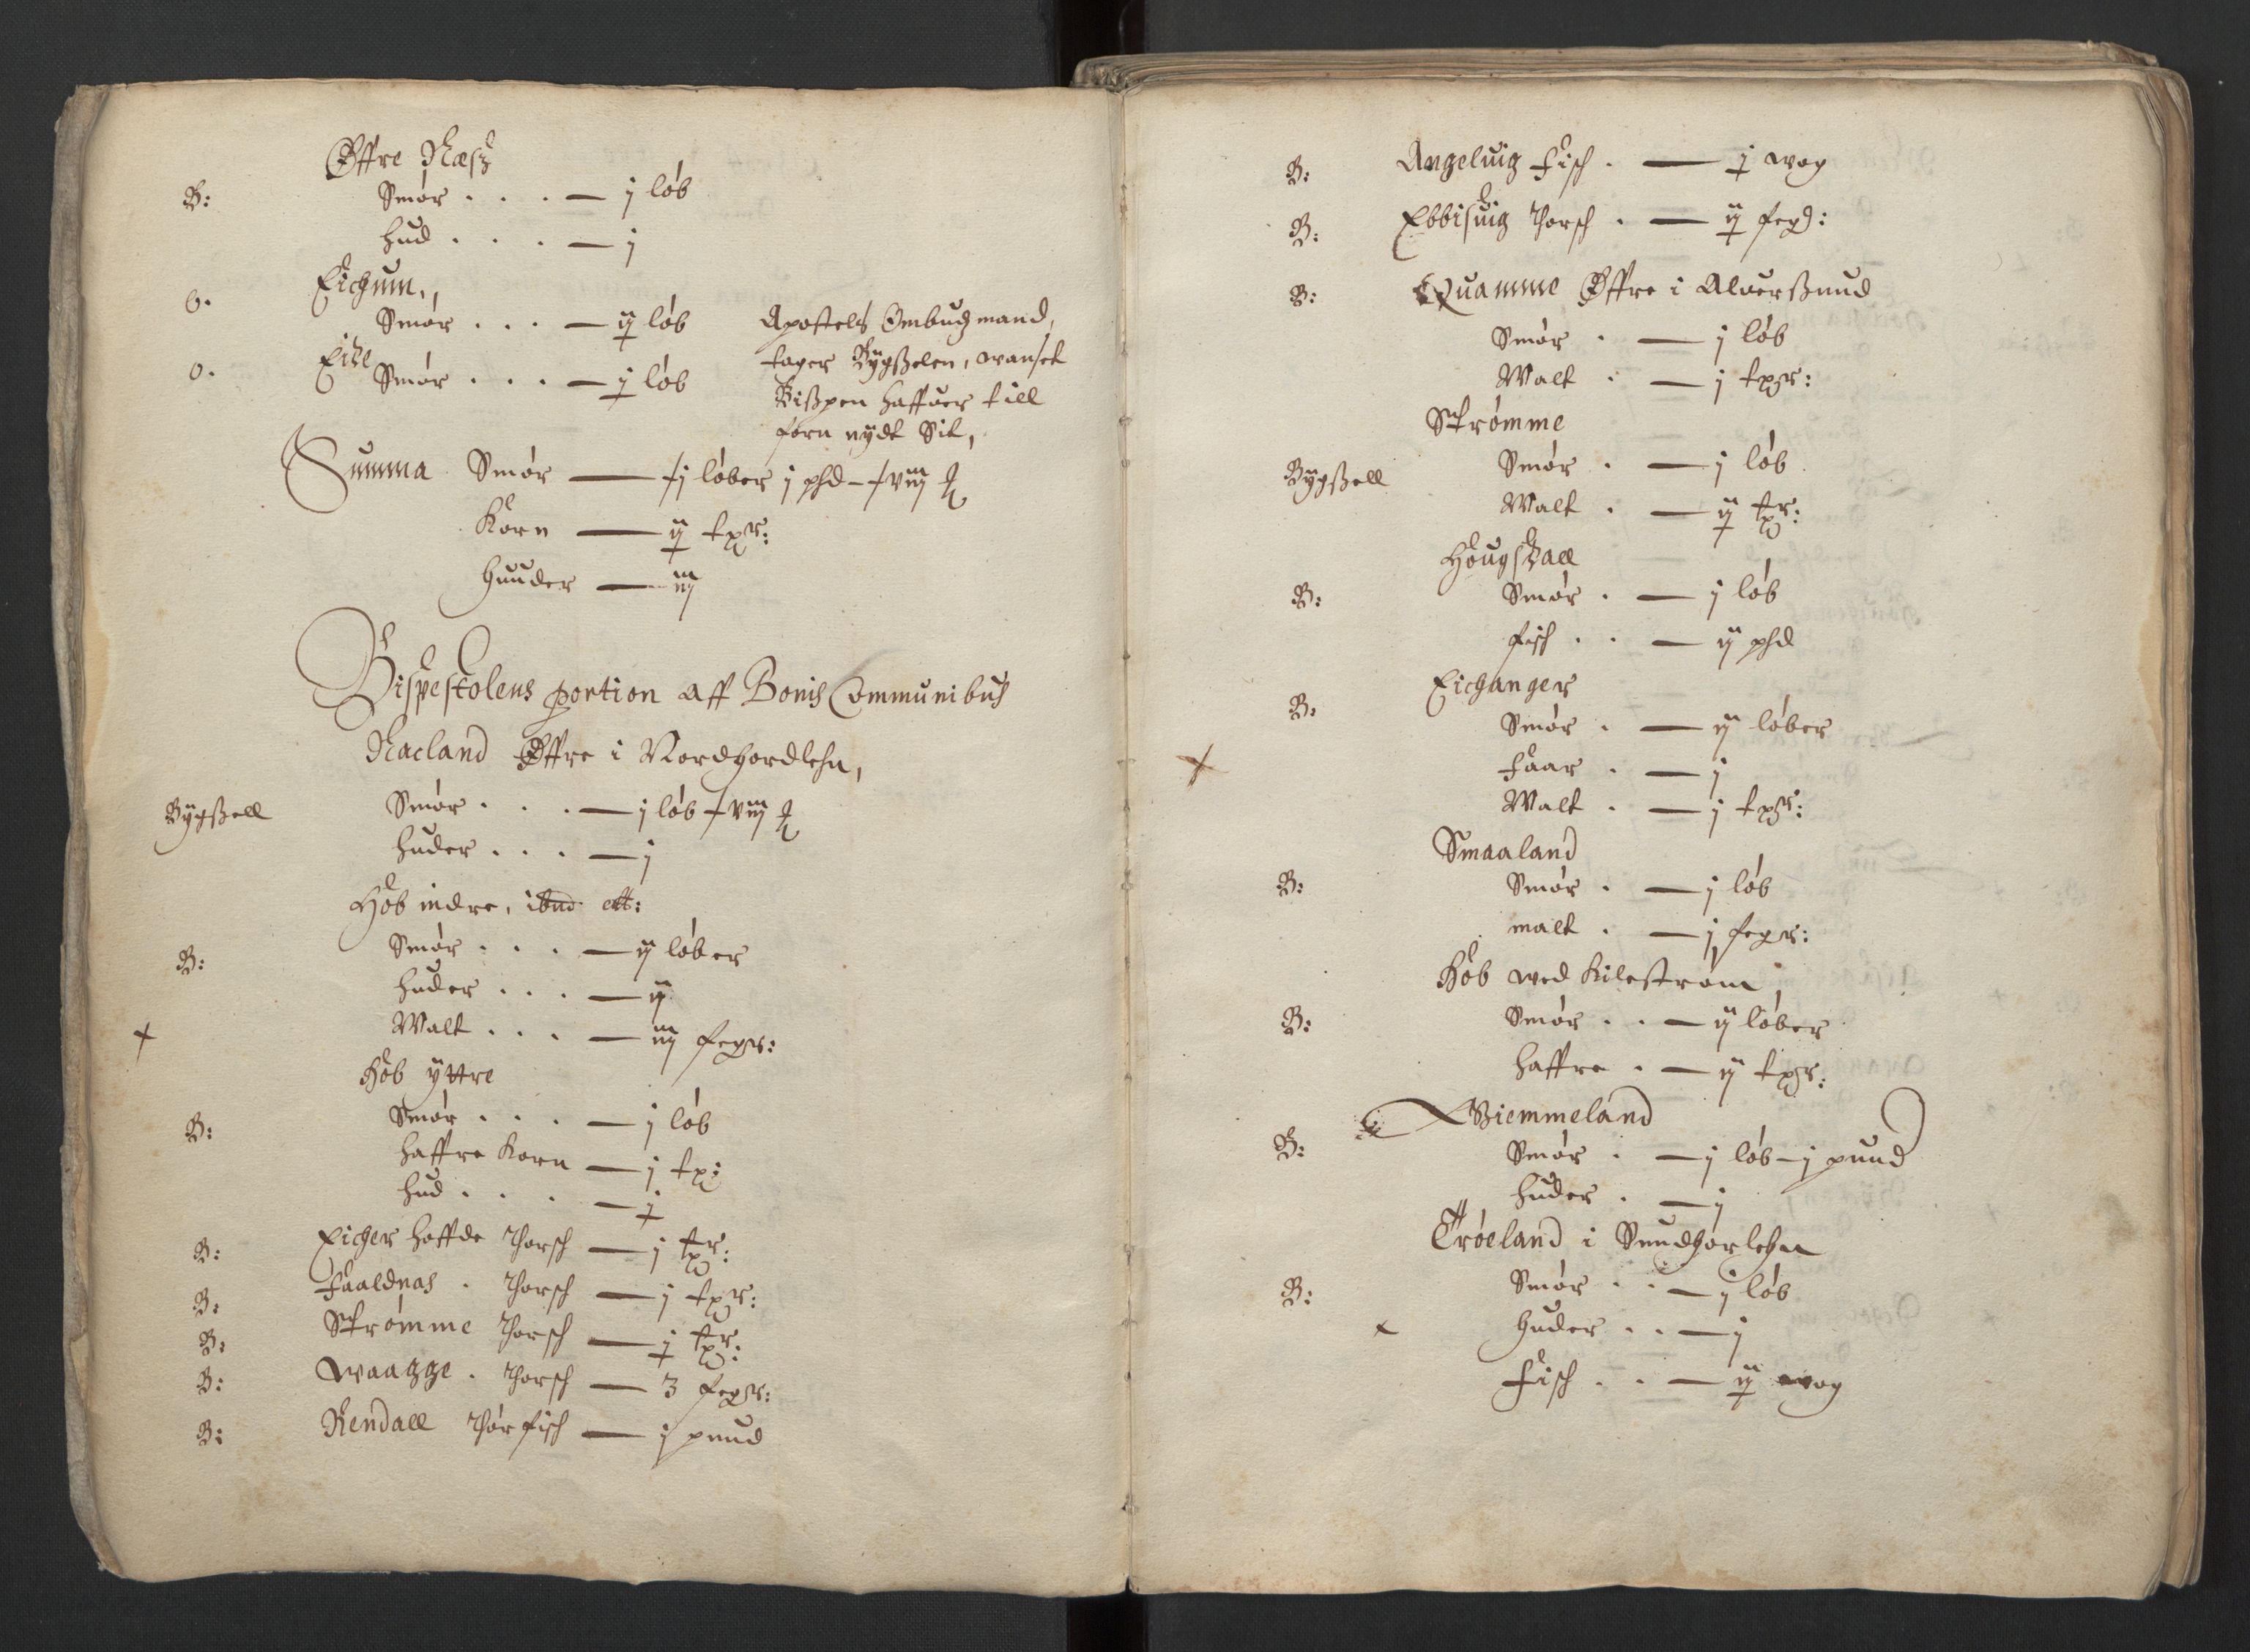 Øffre Næsz
B: Smør . . . — j løb
hud . . . — j
Eichum,,
o. Smør . . . — ij løb
Eide
o. Smør . . . — j løb
Apostels Ombudzmand,
tager Bÿgszelen, wanset
Biszpen haffuer till
forn nÿdt Sit,
Summa Smør — xj løber j phd – xviij
Korn — ij tpr:
Huuder — iij
Bispestolens portion aff Bonis Communibus
Nacland Øffre i Nordhordlehn,
Bÿgszell Smør . . . — j løb xviij
huder . . . — j
Hob indre,
B: Smør . . . — ij løber
huder . . . — ij
+ Malt . . . — iij
Hob ÿttre
B: Smør . . . — j løb
haffre Korn — j tp:
hud . . . — j
B: Eicher hoffde Thorsch — j tpr:
B: Faaldnas . Thorsch — j tpr:
B: Strømme Thorsch — j tpr:
B: Waagge . Thorsch — 3
B: Rendall Thør fisch — j pund
B: Angeluig Fisch . — j wog
B: Ebbisuig Thorsch . — ij
B: Quamme Øffre i Aluerszund
Smør . — j løb
Malt . — j tpr:
Strømme
Bÿgszell Smør . — j løb
Malt . — ij tpr:
Hougszall
B: Smør . — j løb
fisch . . — ij phd
Eichanger
B: Smør . — ij løber
+ Faar . — j
Malt . — j tpr:
Smaaland
B: Smør . — j løb
malt . — j
Hob wed Kilestrøm,
B: Smør . . — ij løber
haffre . — ij tpr:
Biemmeland
B: Smør . — j løb – j pund
huder . — j
Trøeland i Sundhorlehn
B: Smør . . — j løb
+ Huder . . — j
Fisch . . — ij wog